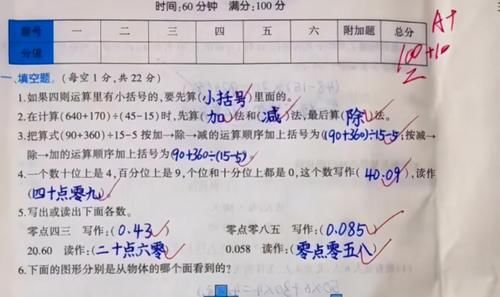 时间:60分钟 满分:100分
题号 一 二 三 四 五 六 附加题 总分
得分 100+10
A+
一、填空题。(每空1分,共22分)
1.如果四则运算里有小括号的,要先算(小括号)里面的。
2.在计算(640+170)÷(45-15)时,先算(加)法和(减)法,最后算(除)法。
3.把算式(90+360)÷15-5按加→除→减的运算顺序加上括号为(90+360)÷15-5;按减→
除→加的运算顺序加上括号为90+360÷(15-5)。
4.一个数十位上是4,百分位上是9,个位和十分位上都是0,这个数写作(40.09),读作
(四十点零九)。
5.写出或读出下面各数。
零点四三 写作:(0.43) 零点零八五 写作:(0.085)
20.60 读作:(二十点六零) 0.058 读作:(零点零五八)
6.下面的图形分别是从物体的哪个面看到的?